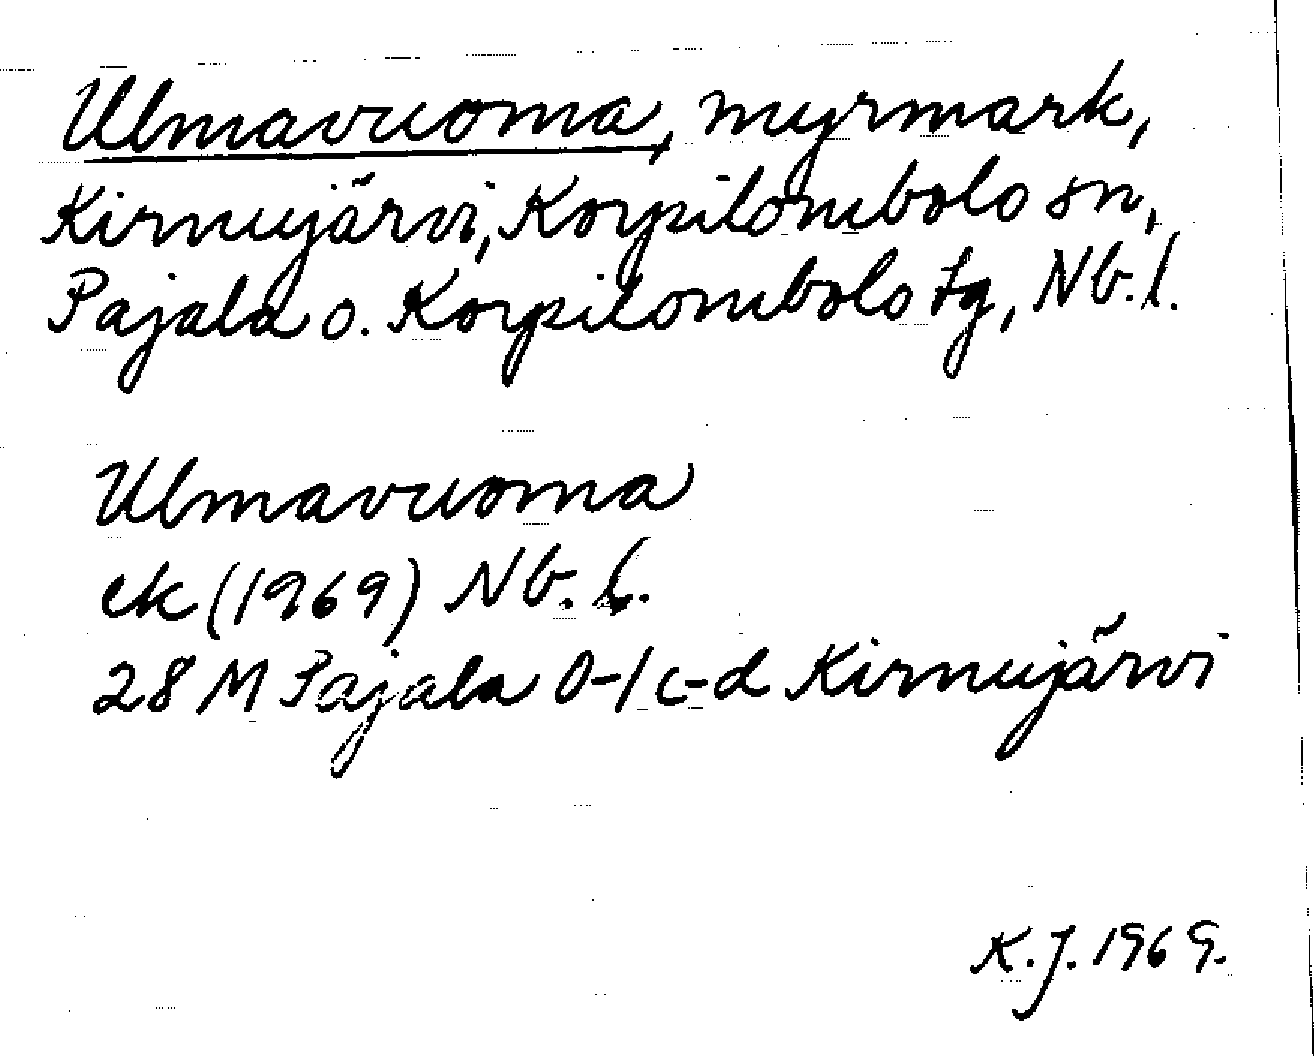 Ulmavuoma, myrmark,
Kirnujärvi, Korpilombolo sn,
Pajala o. Korpilombolo tg, Nb. l.
Ulmavuoma
ek (1969) Nb. l.
28 M Pajala 0-1 c-d Kirnujärvi
K.J. 1969.